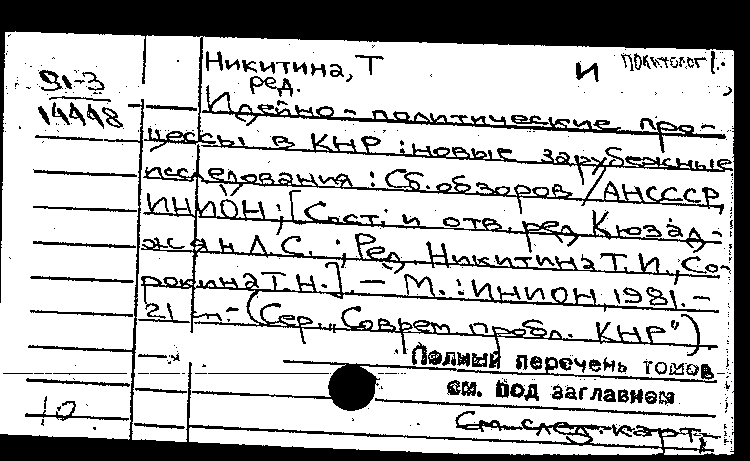 Никитина, Т
и
Политолог
ред.
91-3
14448
Идейно-политические про-
цессы в КНР : новые зарубежные
исследования : Сб. обзоров / АН СССР,
ИНИОН; [Сост. и отв. ред. Кюзад-
жян Л.С. ; Ред. Никитина Т.И., Со-
рокина Т.Н.]. — М. : ИНИОН, 1981. —
21 см. — (Сер. „Соврем. пробл. КНР")
Полный перечень томов
см. под заглавием
10
См. след. карт.